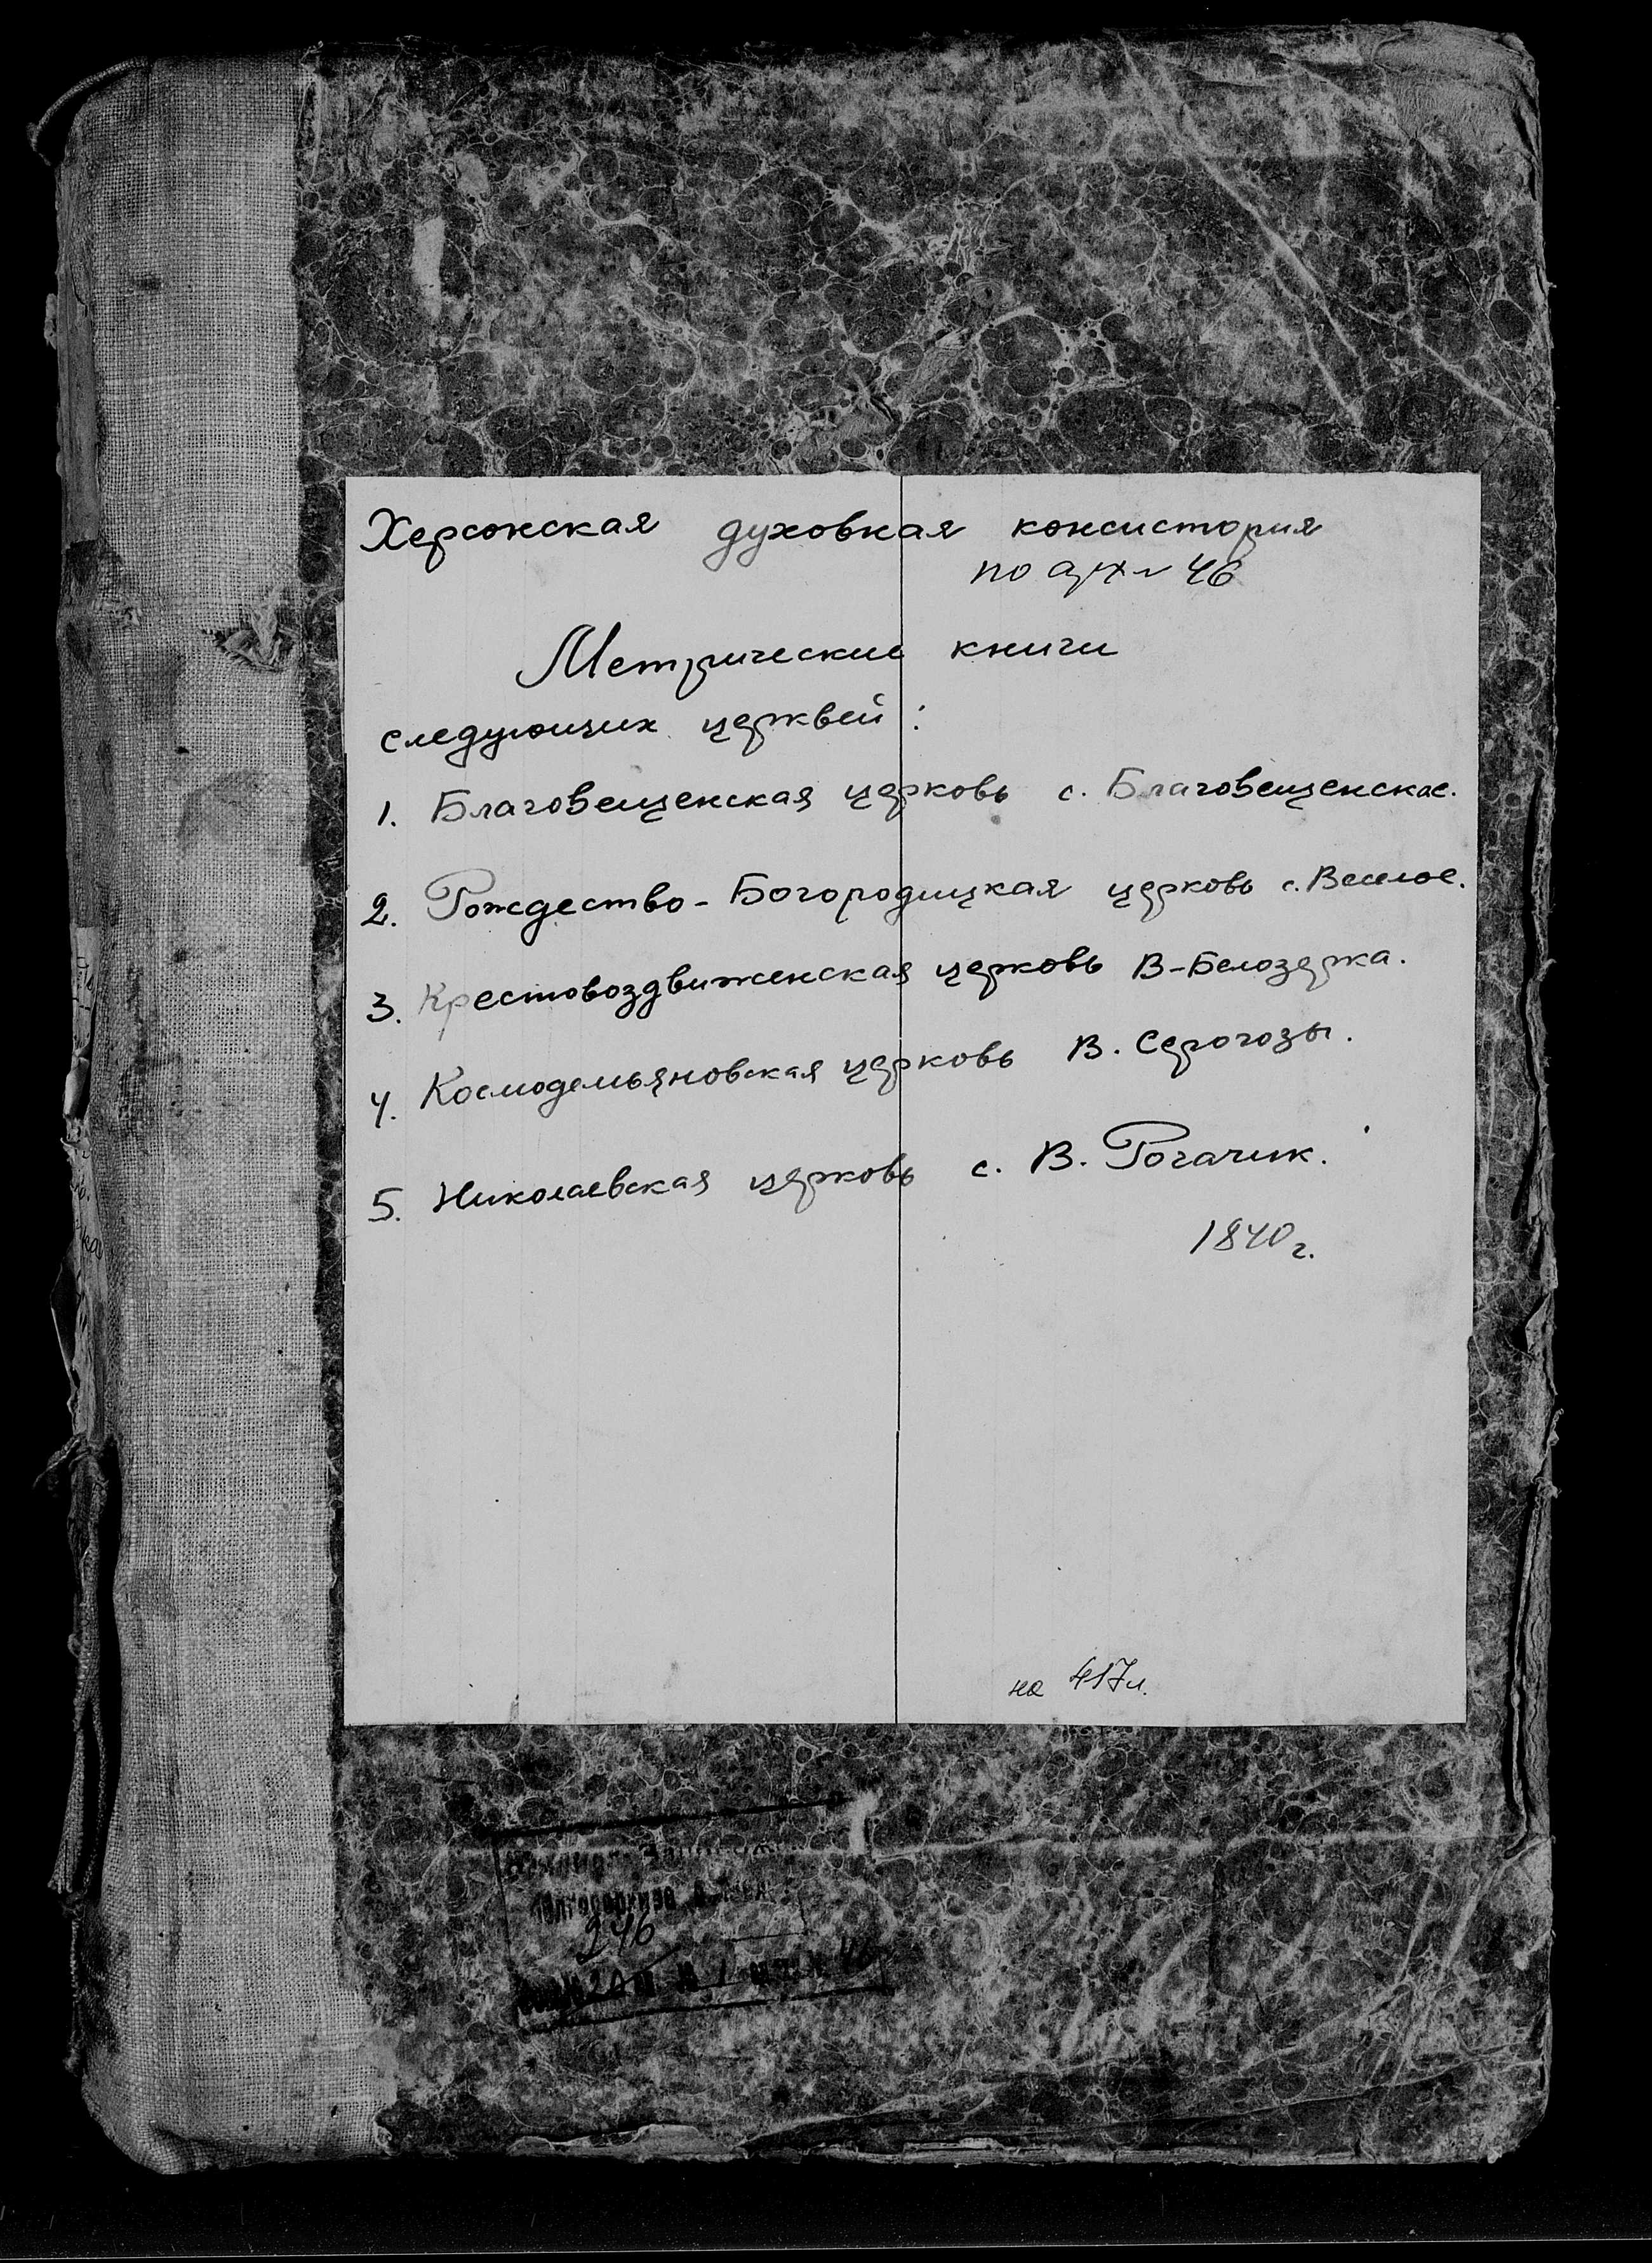 Херсонская духовная консистория
по арх № 46
Метрические книги
следующих церквей:
1. Благовещенская церковь с. Благовещенское.
2. Рождество-Богородицкая церковь с. Веселое.
3. Крестовоздвиженская церковь В-Белозерка.
4. Космодемьяновская церковь В. Серогозы.
5. Николаевская церковь с. В. Рогачик.
1840 г.
на 417 л.
246